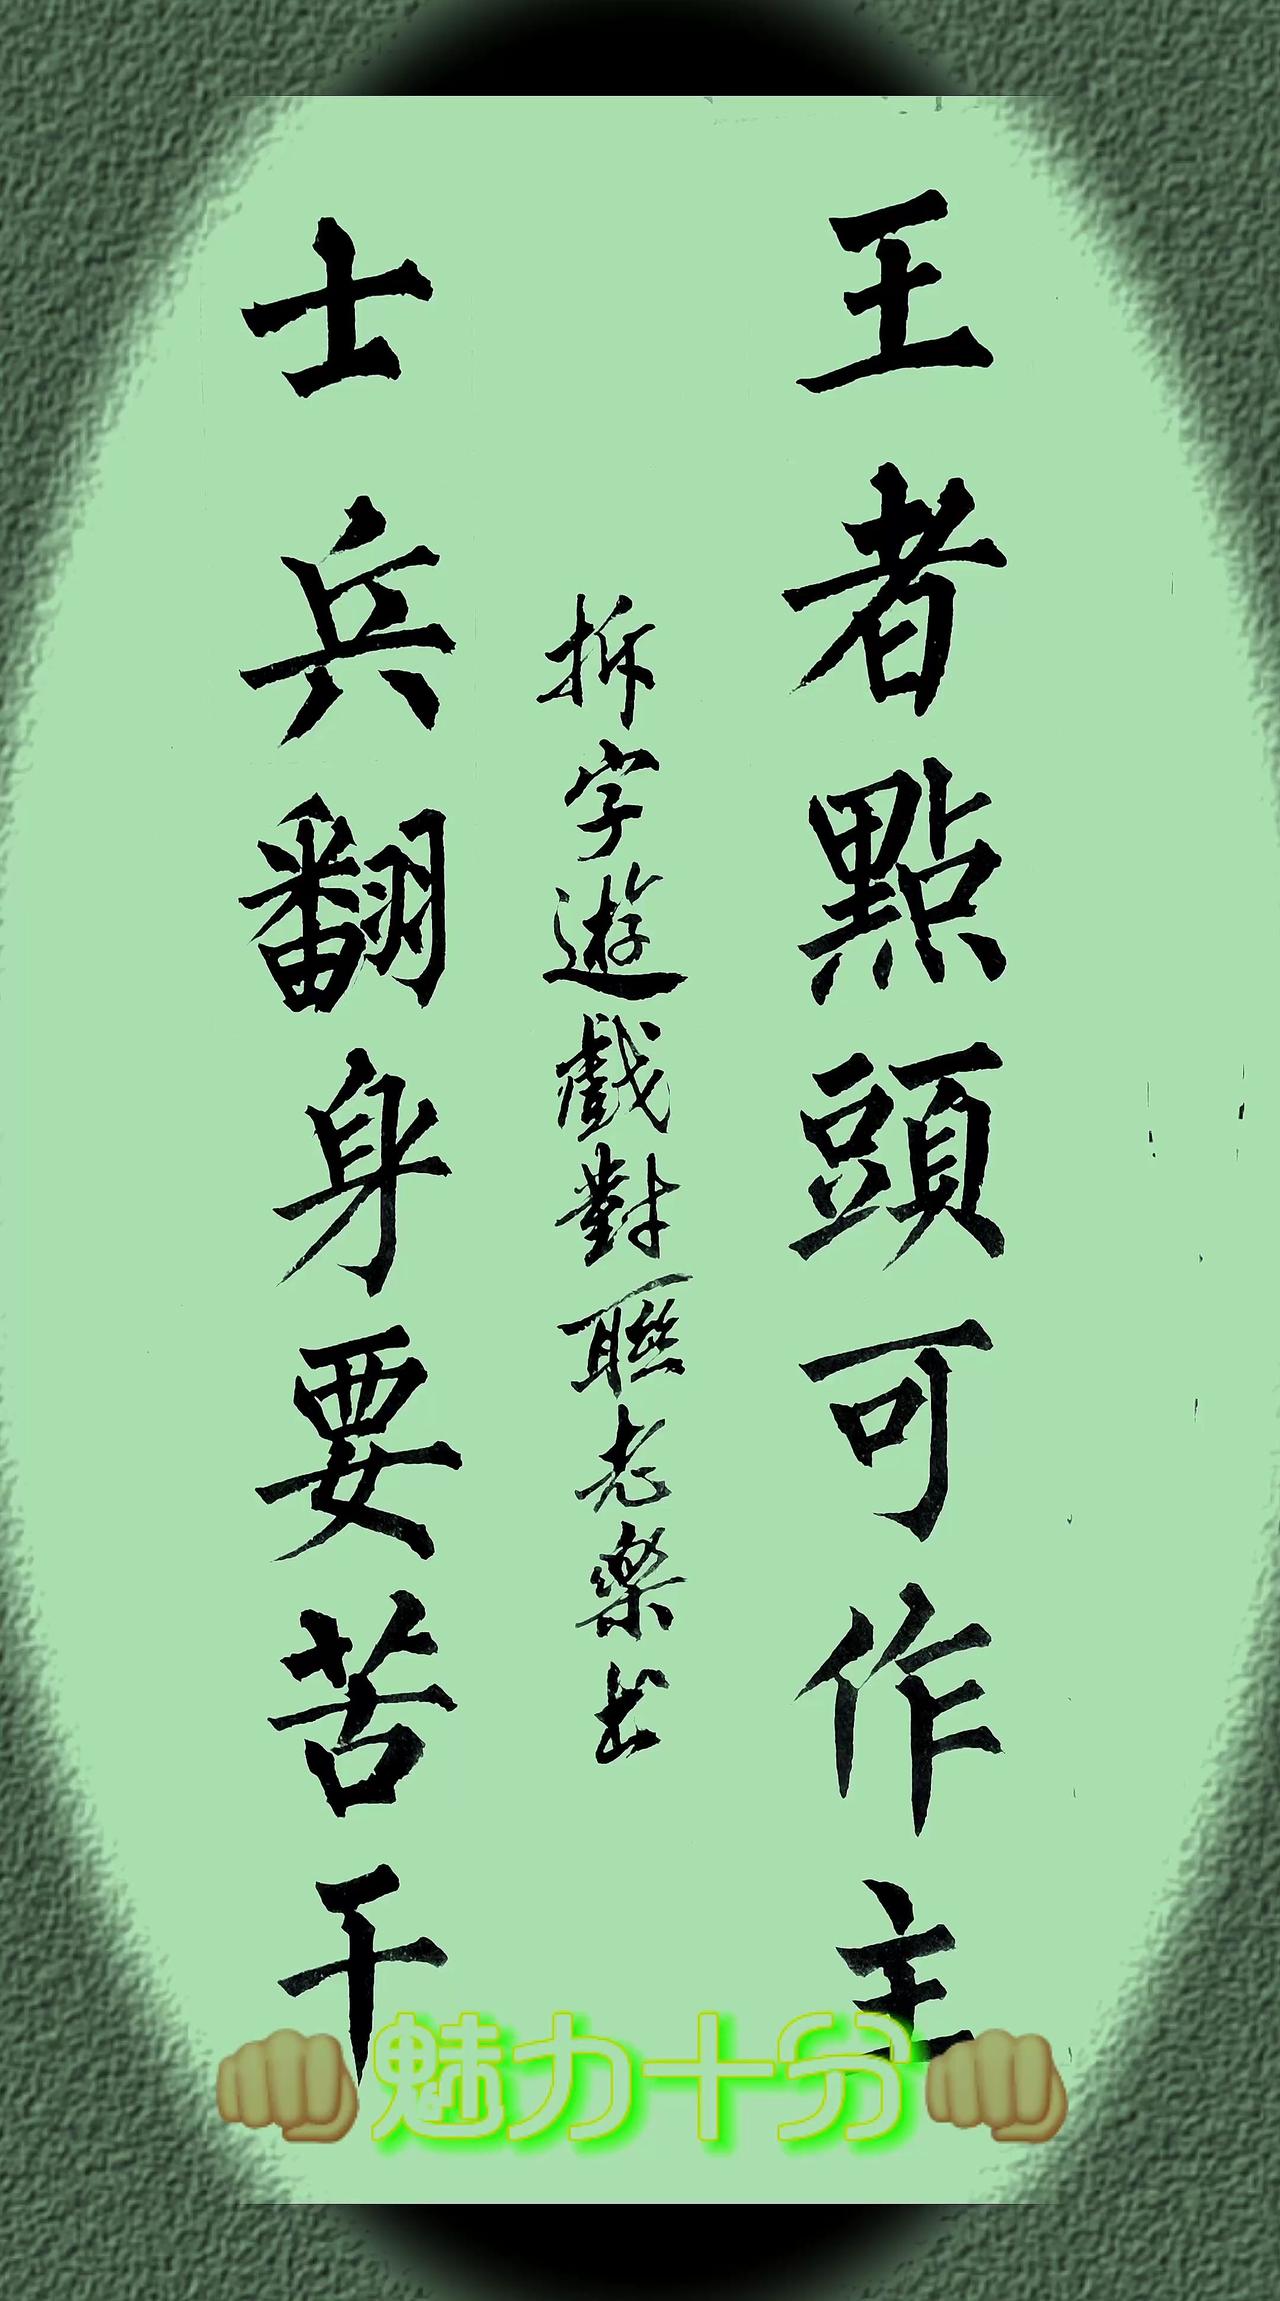 王者點頭可作主
拆字遊戲對聯老樂书
士兵翻身要苦干
👊魅力十分👊